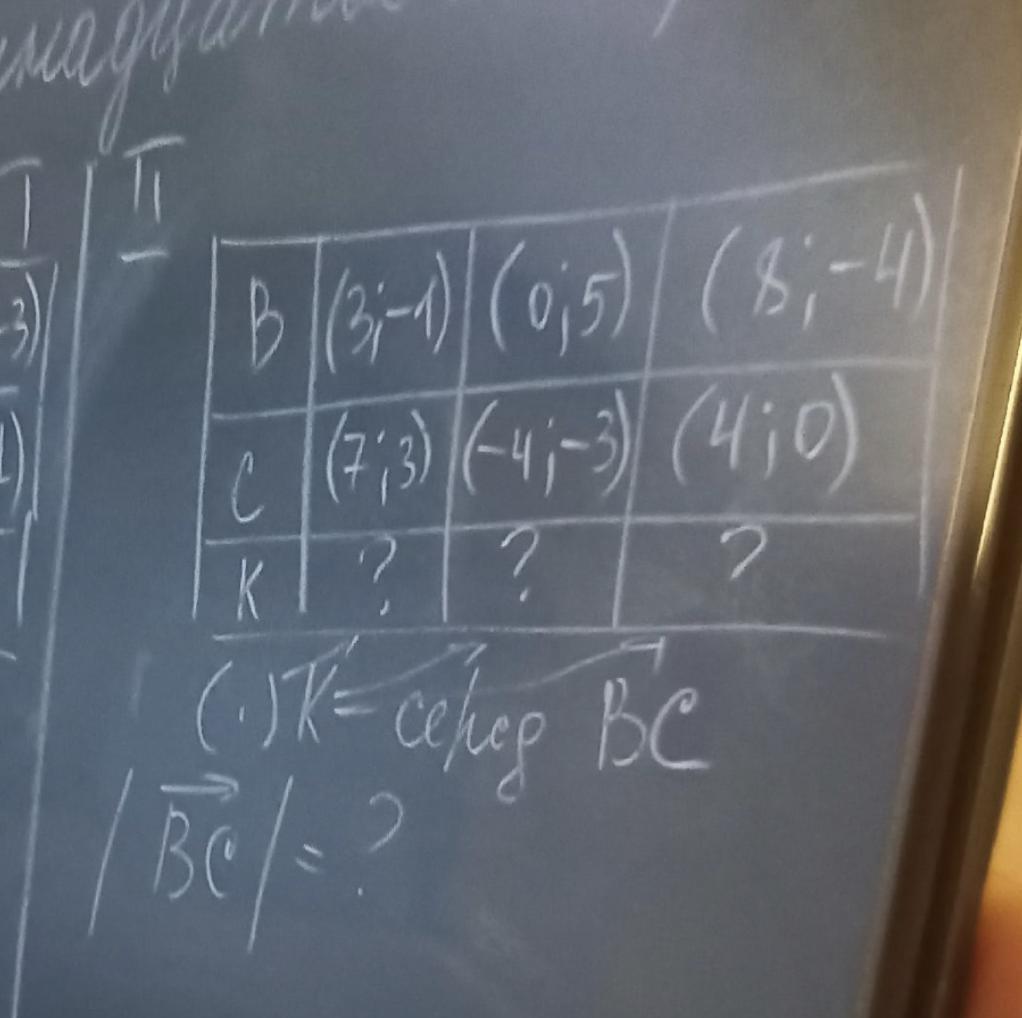 I II
-3)
B (3;-1) (0;5) (8;-4)
1)
C (7;3) (-4;-3) (4;0)
K ? ? ?
(.)K= серед BC
|BC| = ?